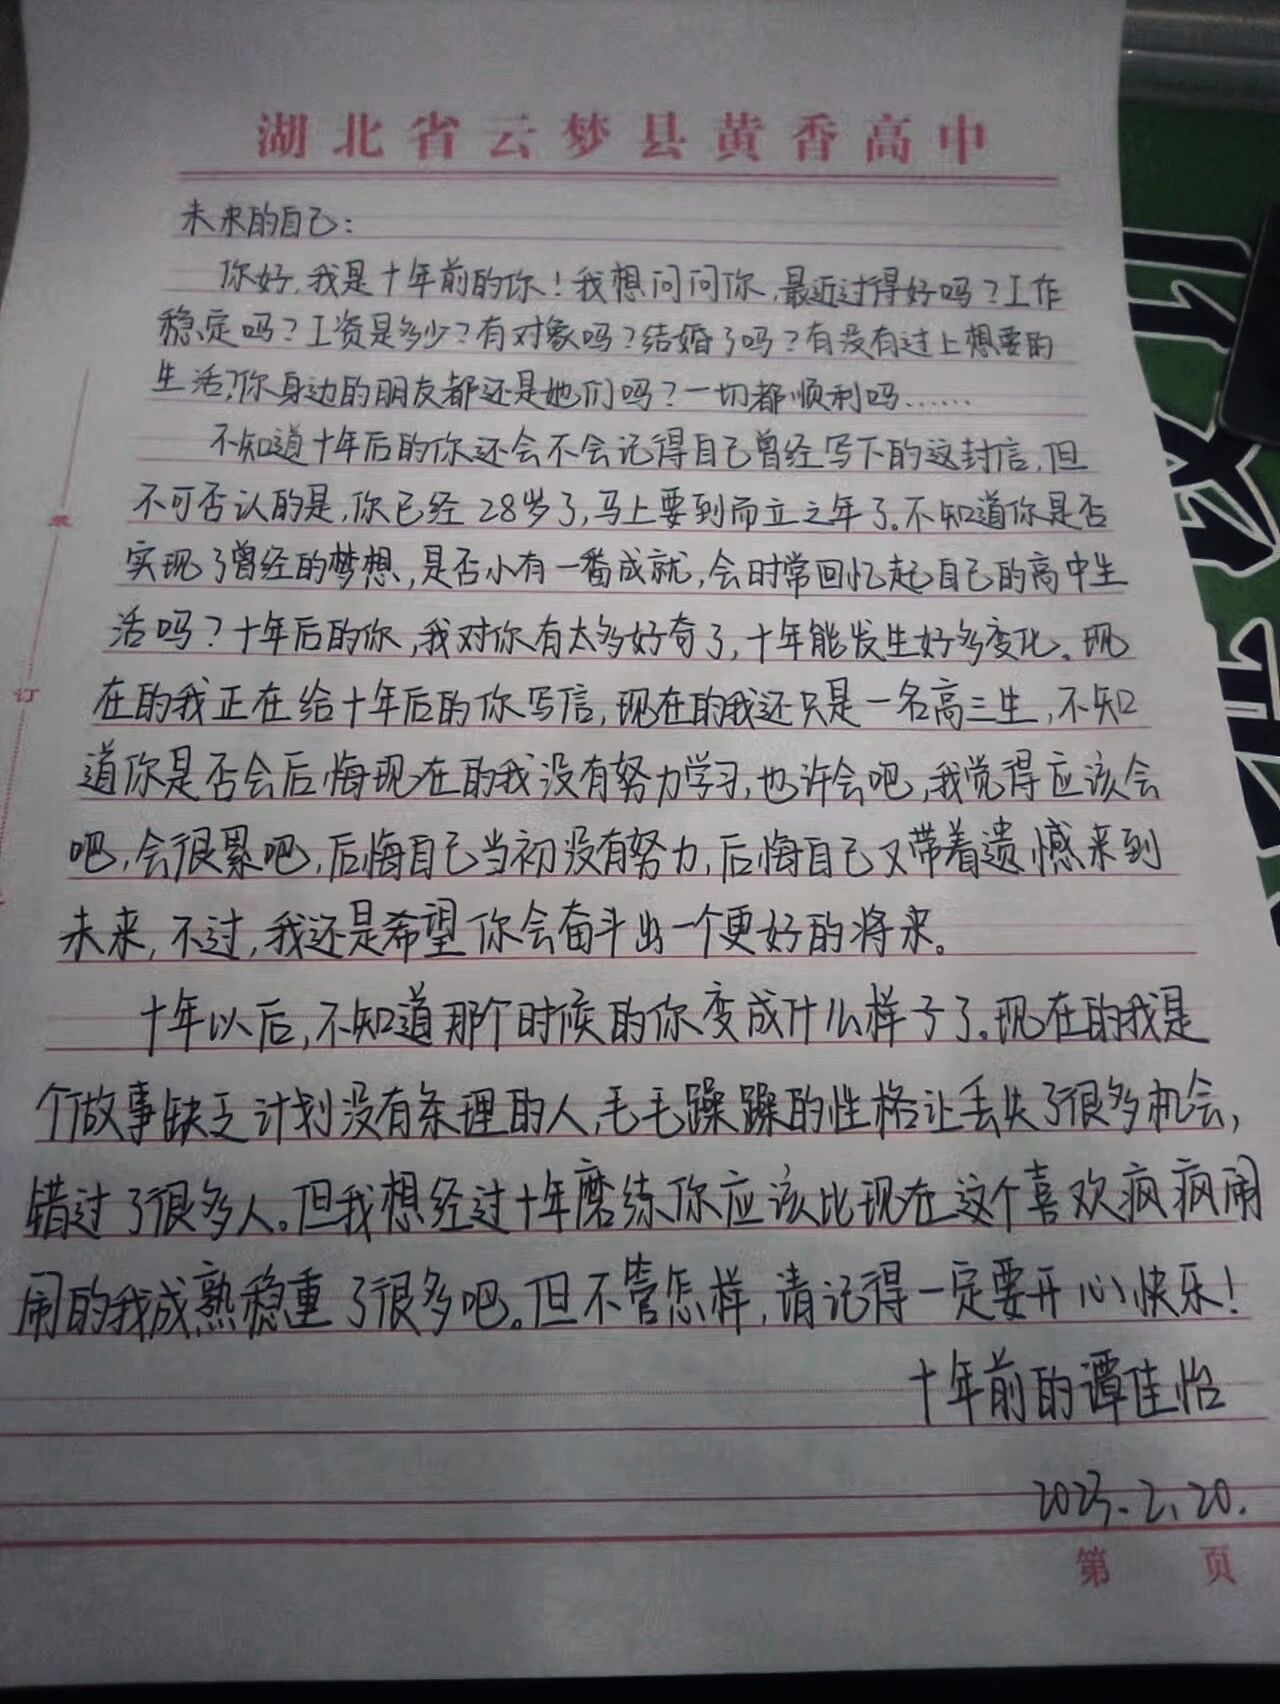 湖北省云梦县黄香高中
未来的自己：
你好，我是十年前的你！我想问问你，最近过得好吗？工作
稳定吗？工资是多少？有对象吗？结婚了吗？有没有过上想要的
生活？你身边的朋友都还是她们吗？一切都顺利吗……
不知道十年后的你还会不会记得自己曾经写下的这封信，但
不可否认的是，你已经28岁了，马上要到而立之年了。不知道你是否
实现了曾经的梦想，是否小有一番成就，会时常回忆起自己的高中生
活吗？十年后的你，我对你有太多好奇了，十年能发生好多变化。现
在的我正在给十年后的你写信，现在的我还只是一名高三生，不知
道你是否会后悔现在的我没有努力学习，也许会吧，我觉得应该会
吧，会很累吧，后悔自己当初没有努力，后悔自己又带着遗憾来到
未来，不过，我还是希望你会奋斗出一个更好的将来。
十年以后，不知道那个时候的你变成什么样子了。现在的我是
个做事缺乏计划没有条理的人，毛毛躁躁的性格让丢失了很多机会，
错过了很多人。但我想经过十年磨练你应该比现在这个喜欢疯疯闹
闹的我成熟稳重了很多吧。但不管怎样，请记得一定要开心快乐！
十年前的谭佳怡
2023.2.20.
第 页
订